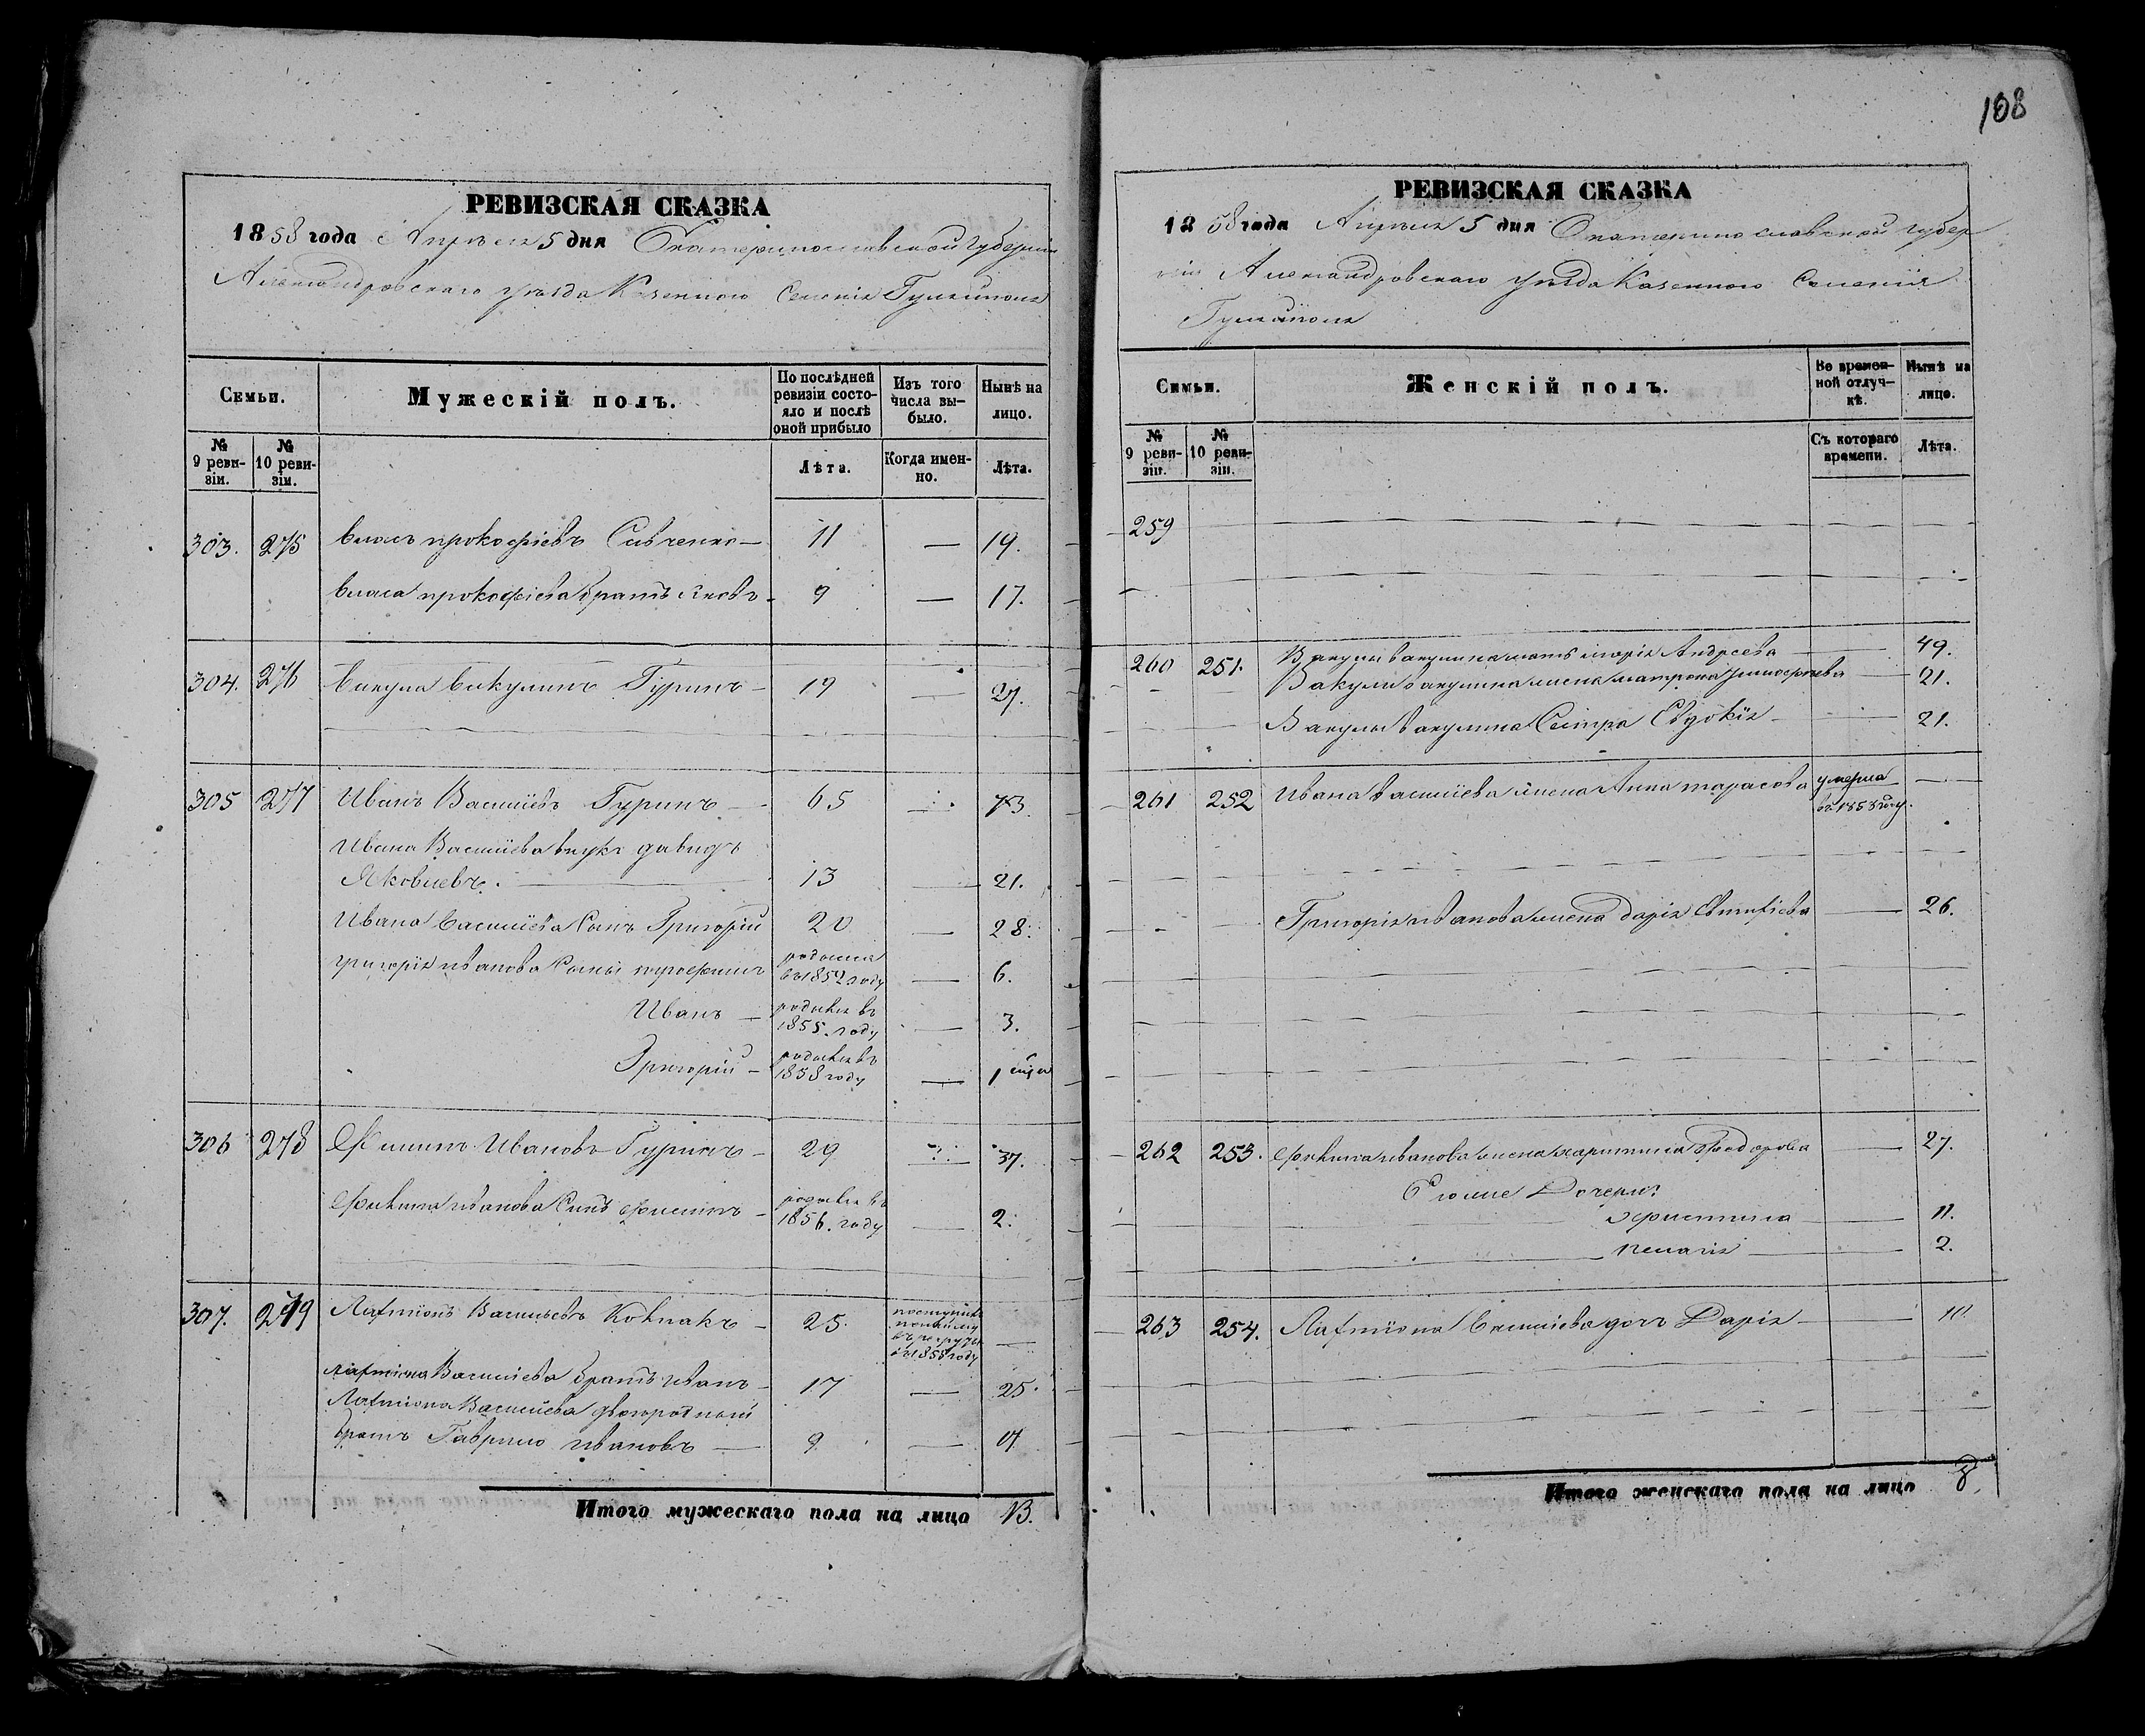 РЕВИЗСКАЯ СКАЗКА
1858 года Апреля 5 дня Екатеринославской губерніи
Александровскаго уезда Казенного Селенія Гуляйполя
Семьи.
Мужескій полъ.
По послѣдней ревизіи состояло и послѣ оной прибыло
Изъ того числа выбыло.
Нынѣ на лицо.
№ 9 ревизіи.
№ 10 ревизіи.
Лѣта.
Когда именно.
Лѣта.
303. 275 Власъ прокофіевъ Савченко — 11 — 19.
Власа прокофіева братъ Яковъ — 9 — 17.
304. 276 Вакула Вакулинъ Гуринъ — 19 — 27.
305 277 Иванъ Василіевъ Гуринъ — 65 — 73.
Ивана Василіева внукъ давидъ
Яковлевъ. — 13 — 21.
Ивана Василіева Сынъ Григорій 20 — 28.
григорія иванова Сыны трофимъ родился въ 1852 году — 6.
Иванъ — родився въ 1855. году — 3.
Григорій — родився въ 1858 году — 1
306 278 Филипъ Ивановъ Гуринъ — 29 — 37.
Филипа иванова Сынъ филипъ — родився въ 1856. году — 2.
307. 279 Лафтіонъ Васильевъ Ковпакъ — 25. поступилъ въ рекруты въ 1858 году —
Лафтіона Василіева братъ иванъ — 17 — 25.
Лафтіона Василіева двоюродный
братъ Гаврило ивановъ — 9 — 17
Итого мужескаго пола на лицо 13.
108
РЕВИЗСКАЯ СКАЗКА
1858 года Апреля 5 дня Екатеринославской губер
ніи Александровскаго уезда Казенного Селенія
Гуляйполя
Семьи.
Женскій полъ.
Во временной отлучкѣ.
Нынѣ на лицо.
№ 9 ревизіи.
№ 10 ревизіи.
Съ котораго времени.
Лѣта.
259
260 251. Вакулы вакулина мать марія Андреева — 49.
Вакулы вакулина жена матрона — 21.
Вакулы вакулина Сестра Евдокія — 21.
261 252 Ивана василіева жена Анна тарасова умерла въ 1858 году. —
Григорія иванова жена дарія — 26.
262 253. Филипа иванова жена харитина Федорова — 27.
Его же Дочери:
христина — 11.
пелагія — 2.
263 254. Лафтіона Василіева дочь Дарія — 10
Итого женскаго пола на лицо 8.